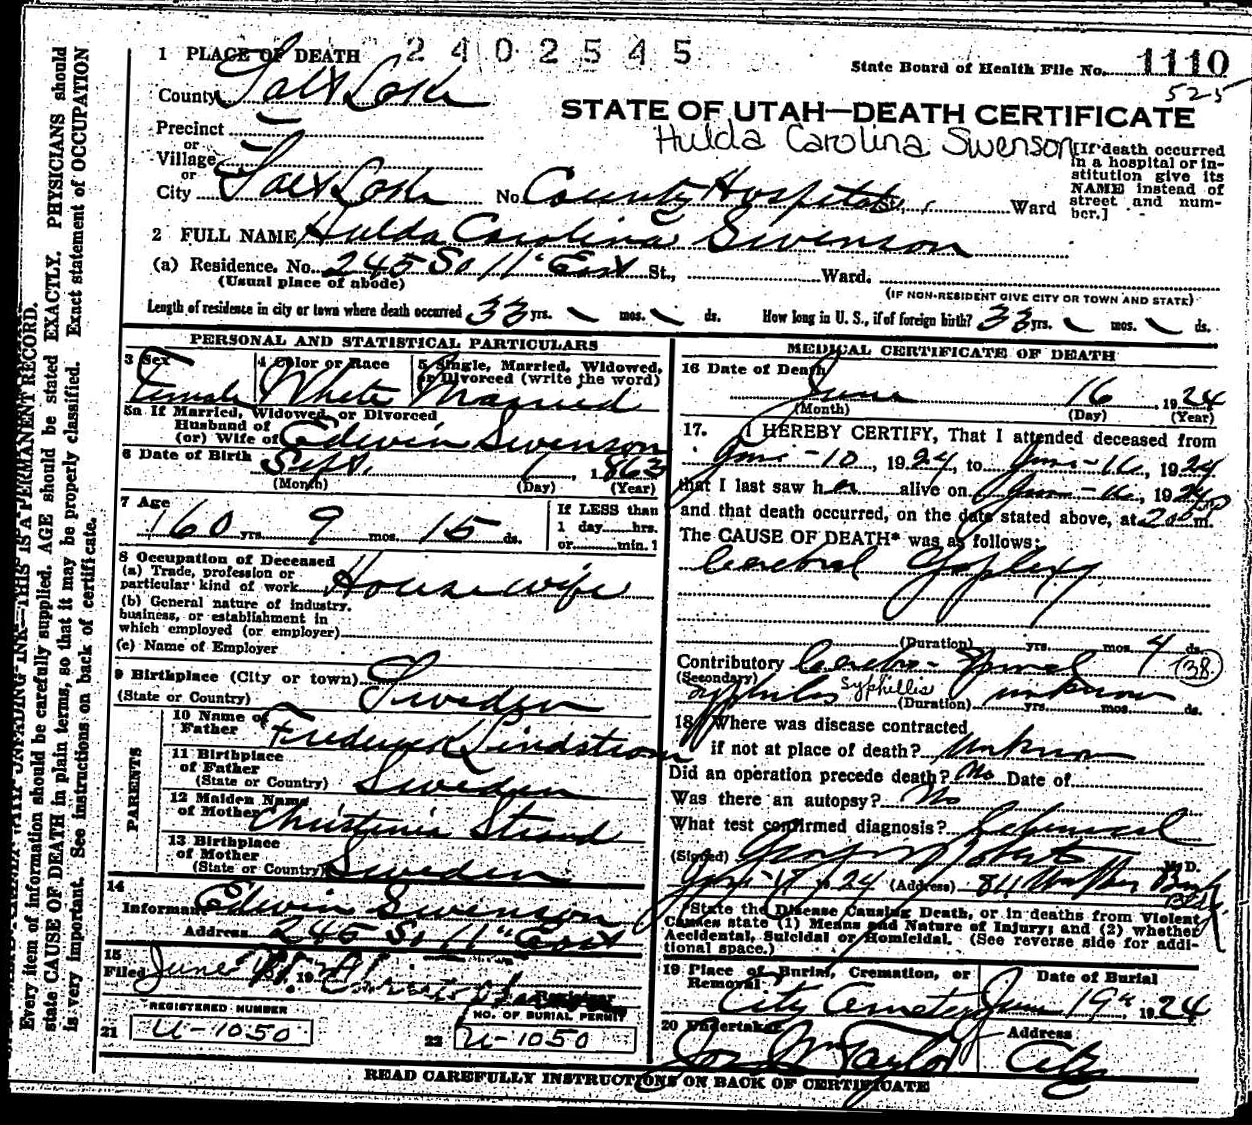 1 PLACE OF DEATH 2402545
State Board of Health File No. 1110
525
County Salt Lake
STATE OF UTAH—DEATH CERTIFICATE
Hulda Carolina Swenson
Precinct
or
Village
or
City Salt Lake No. County Hospital St., Ward
[If death occurred
in a hospital or in-
stitution give its
NAME instead of
street and num-
ber.]
2 FULL NAME Hulda Carolina Swenson
(a) Residence. No. 245 So 11" East St., Ward.
(Usual place of abode)
(IF NON-RESIDENT GIVE CITY OR TOWN AND STATE)
Length of residence in city or town where death occurred 33 yrs. mos. ds. How long in U. S., if of foreign birth? 33 yrs. mos. ds.
PERSONAL AND STATISTICAL PARTICULARS
3 Sex Female
4 Color or Race White
5 Single, Married, Widowed,
or Divorced (write the word) Married
5a If Married, Widowed, or Divorced
Husband of
(or) Wife of Edwin Swenson
6 Date of Birth Sept. 1, 1863
(Month) (Day) (Year)
7 Age 60 yrs. 9 mos. 15 ds.
If LESS than
1 day hrs.
or min.
8 Occupation of Deceased
(a) Trade, profession or
particular kind of work Housewife
(b) General nature of industry.
business, or establishment in
which employed (or employer)
(c) Name of Employer
9 Birthplace (City or town)
(State or Country) Sweden
PARENTS
10 Name of
Father Frederick Lindstrom
11 Birthplace
of Father
(State or Country) Sweden
12 Maiden Name
of Mother Christina Strand
13 Birthplace
of Mother
(State or Country) Sweden
14
Informant Edwin Swenson
Address 245 So 11" East
15
Filed June 19
REGISTERED NUMBER
21 U-1050
NO. OF BURIAL PERMIT
22 U-1050
MEDICAL CERTIFICATE OF DEATH
16 Date of Death
June 16, 1924
(Month) (Day) (Year)
17. I HEREBY CERTIFY, That I attended deceased from
June-10, 1924, to June-16, 1924
that I last saw her alive on June-16, 1924
and that death occurred, on the date stated above, at 200 m.
The CAUSE OF DEATH* was as follows:
Cerebral Apoplexy
(Duration) yrs. mos. 4 ds.
Contributory Cerebro-Spinal
(Secondary) Syphilis Syphillis 38
(Duration) unknown yrs. mos. ds.
18 Where was disease contracted
if not at place of death? Unknown
Did an operation precede death? No Date of
Was there an autopsy? No
What test confirmed diagnosis?
(Signed) M. D.
24 (Address) 811
*State the Disease Causing Death, or in deaths from Violent
Causes state (1) Means and Nature of Injury; and (2) whether
Accidental, Suicidal or Homicidal. (See reverse side for addi-
tional space.)
19 Place of Burial, Cremation, or
Removal City Cemetery
Date of Burial
June 19", 1924
20 Undertaker Jos Wm Taylor
Address City
READ CAREFULLY INSTRUCTIONS ON BACK OF CERTIFICATE
THIS IS A PERMANENT RECORD.
Every item of information should be carefully supplied. AGE should be stated EXACTLY. PHYSICIANS should
state CAUSE OF DEATH in plain terms, so that it may be properly classified. Exact statement of OCCUPATION
is very important. See instructions on back of certificate.